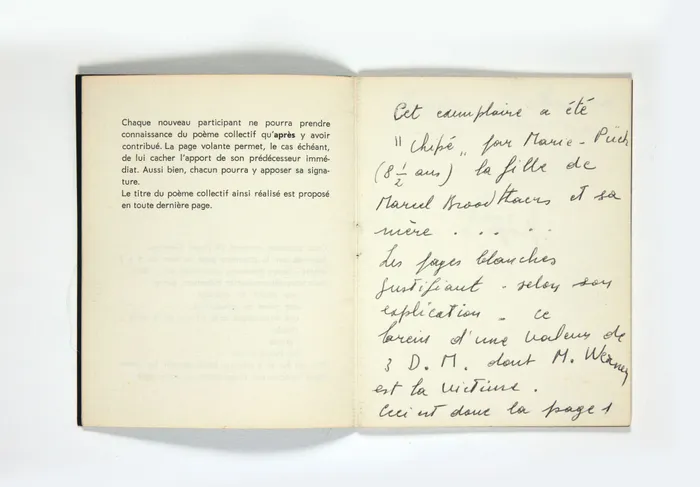 Chaque nouveau participant ne pourra prendre
connaissance du poème collectif qu'après y avoir
contribué. La page volante permet, le cas échéant,
de lui cacher l'apport de son prédécesseur immé-
diat. Aussi bien, chacun pourra y apposer sa signa-
ture.
Le titre du poème collectif ainsi réalisé est proposé
en toute dernière page.
Cet exemplaire a été
"chipé" par Marie-Puck
(8 ½ ans) la fille de
Marcel Broodthaers et sa
mère . . . . .
Les pages blanches
justifiant - selon son
explication - ce
larcin d'une valeur de
3 D.M. dont M. Werner
est la victime.
Ceci est donc la page 1